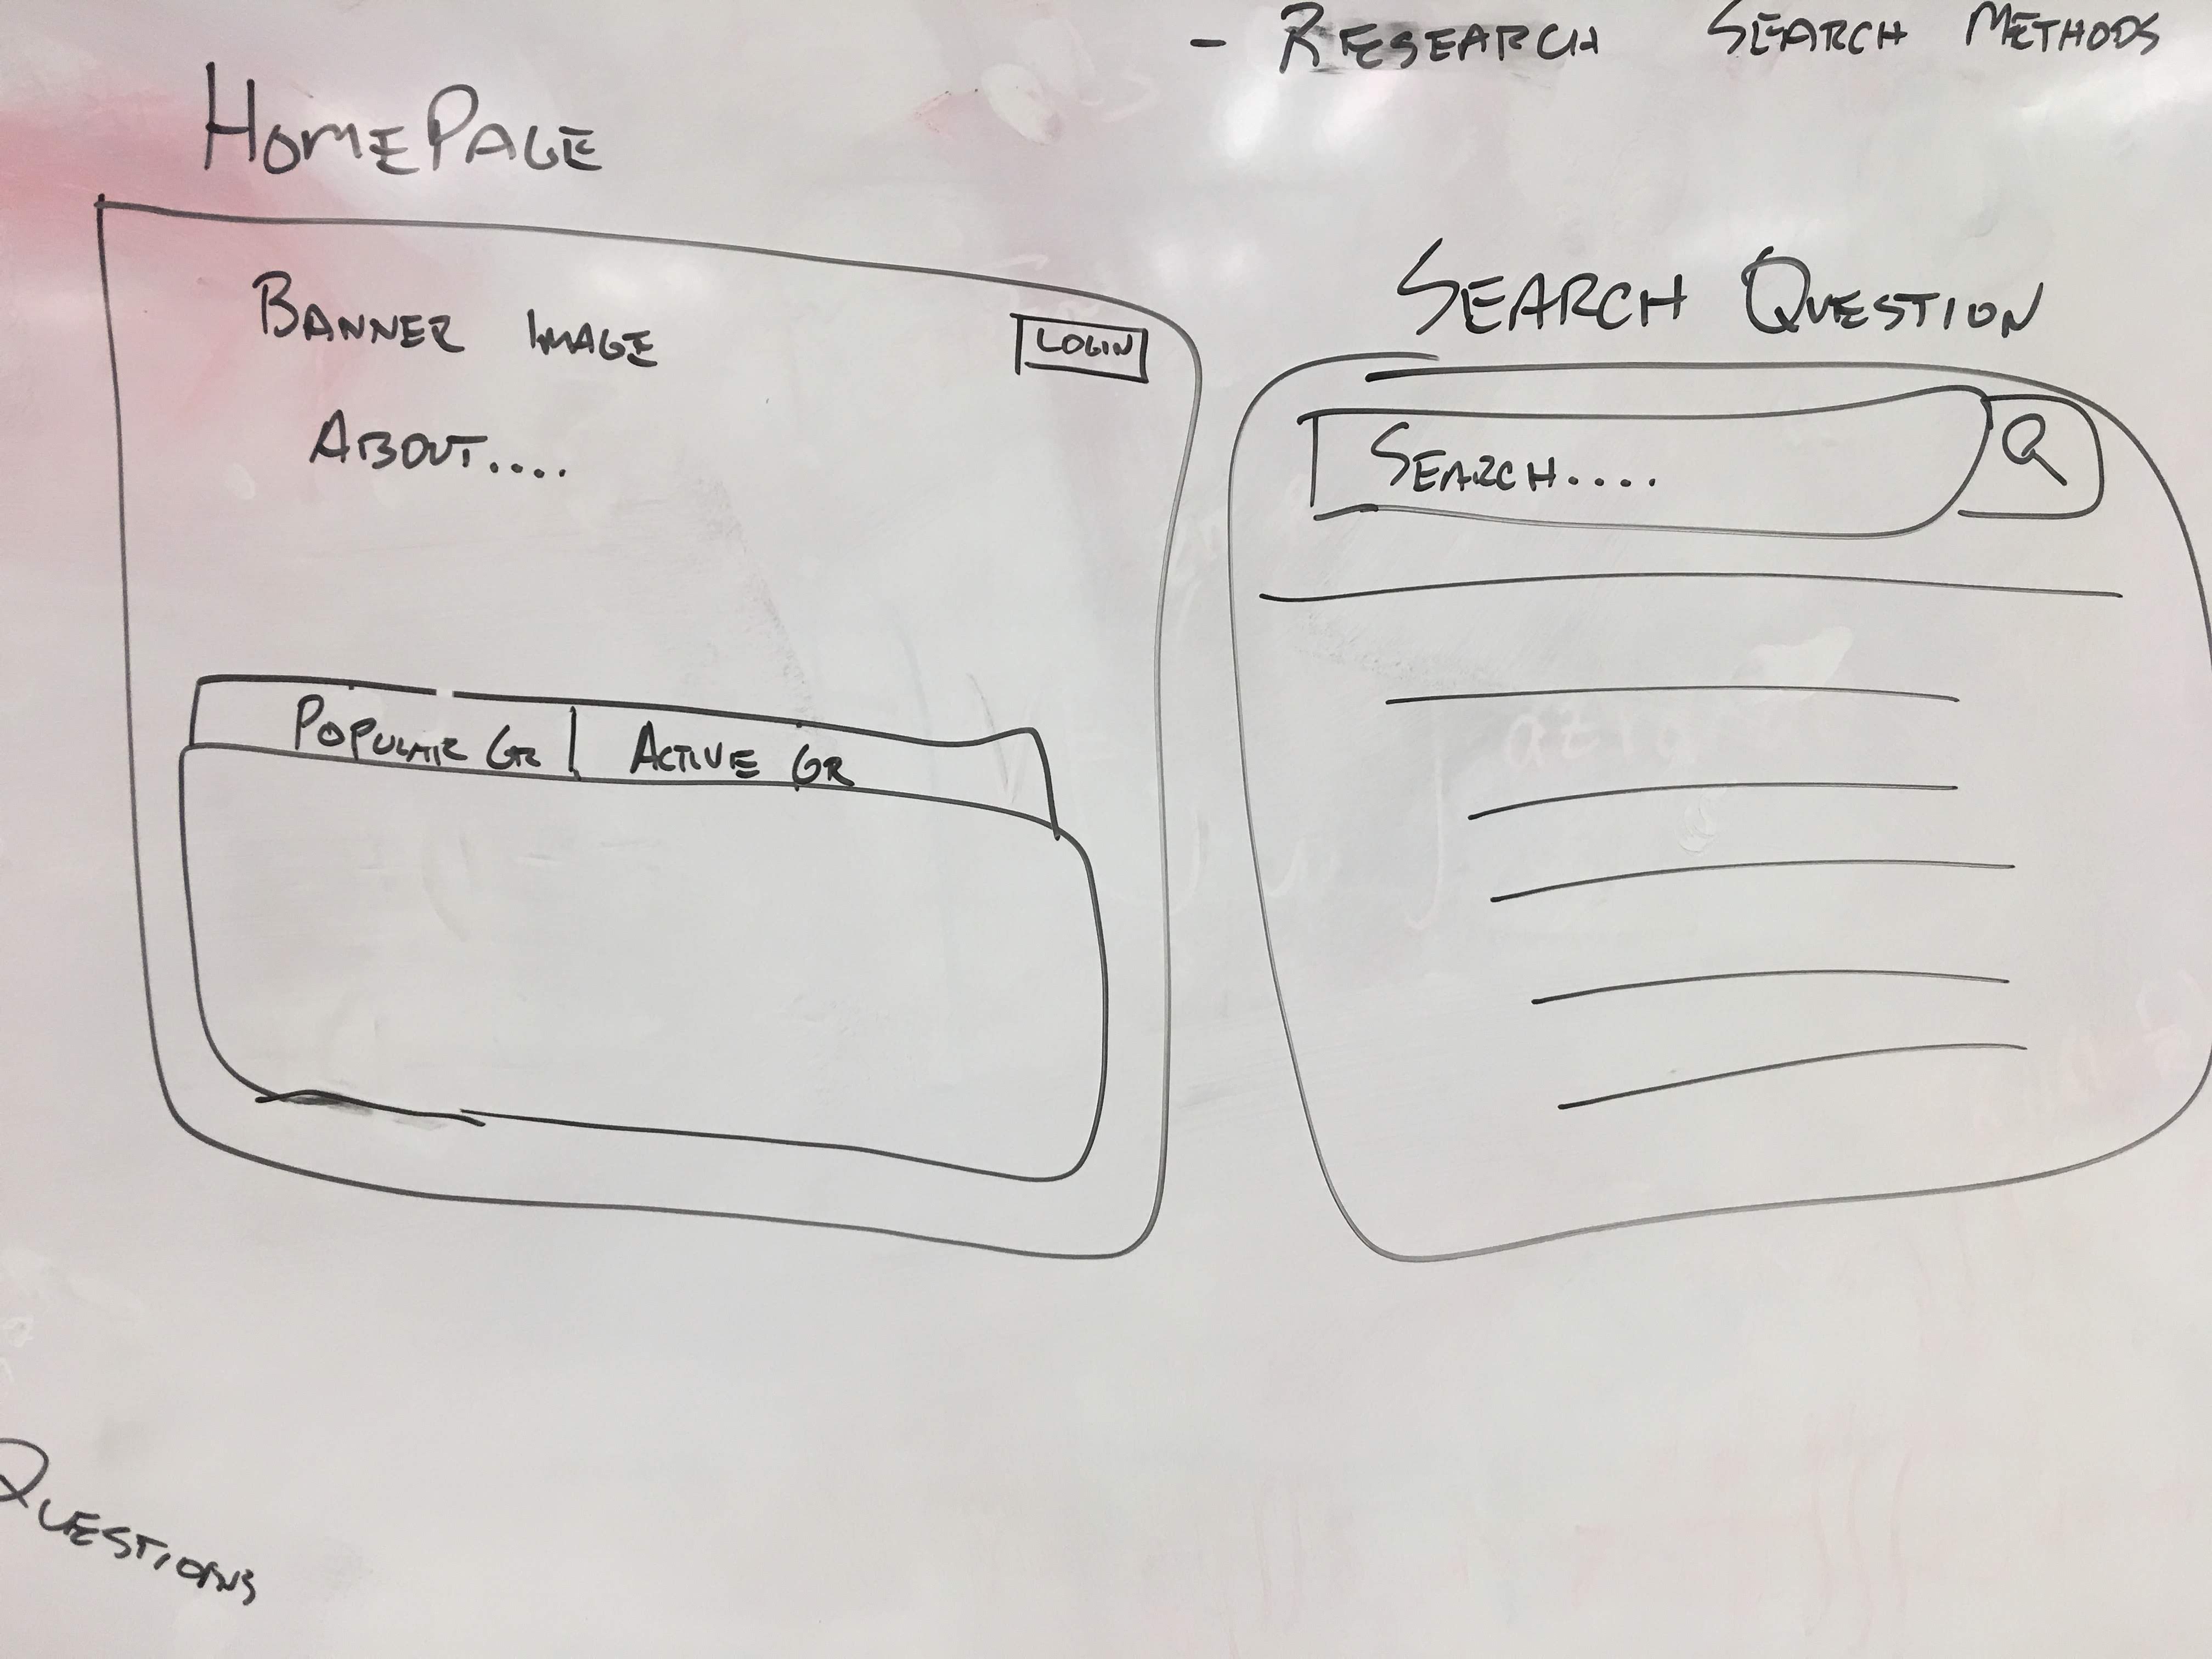 - RESEARCH SEARCH METHODS
HOMEPAGE
BANNER IMAGE
LOGIN
ABOUT....
POPULAR GR | ACTIVE GR
SEARCH QUESTION
SEARCH.....
QUESTIONS